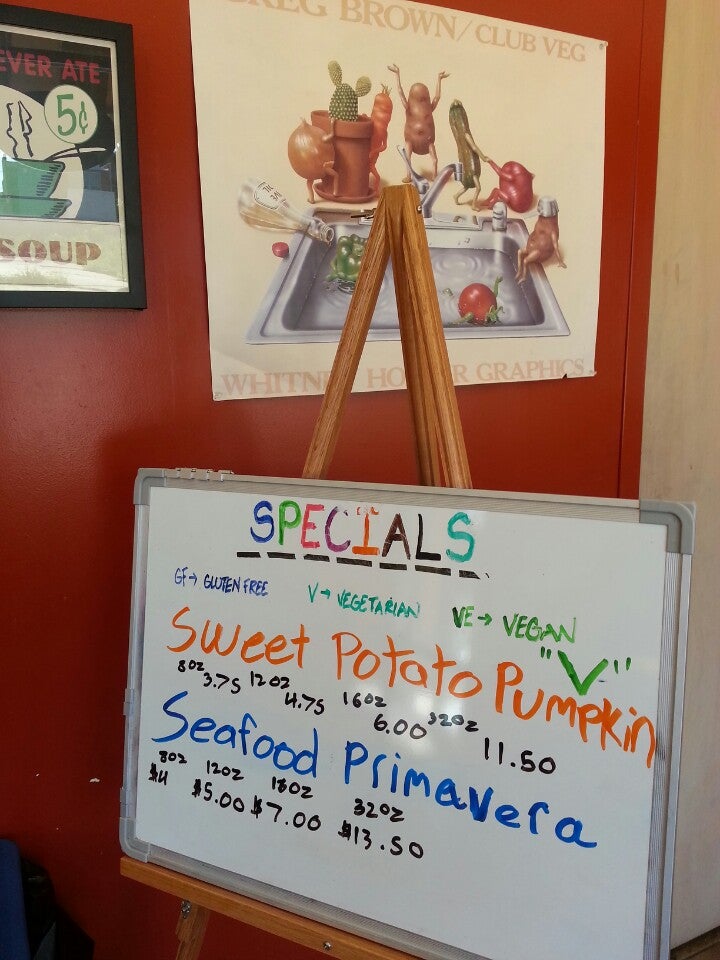 EVER ATE
5¢
SOUP
GREG BROWN/CLUB VEG
WHITNEY HO R GRAPHICS
SPECIALS
GF→ GLUTEN FREE V→ VEGETARIAN VE→ VEGAN
Sweet Potato Pumpkin "V"
8oz 12oz 16oz 32oz
3.75 4.75 6.00 11.50
Seafood Primavera
8oz 12oz 16oz 32oz
$4 $5.00 $7.00 $13.50